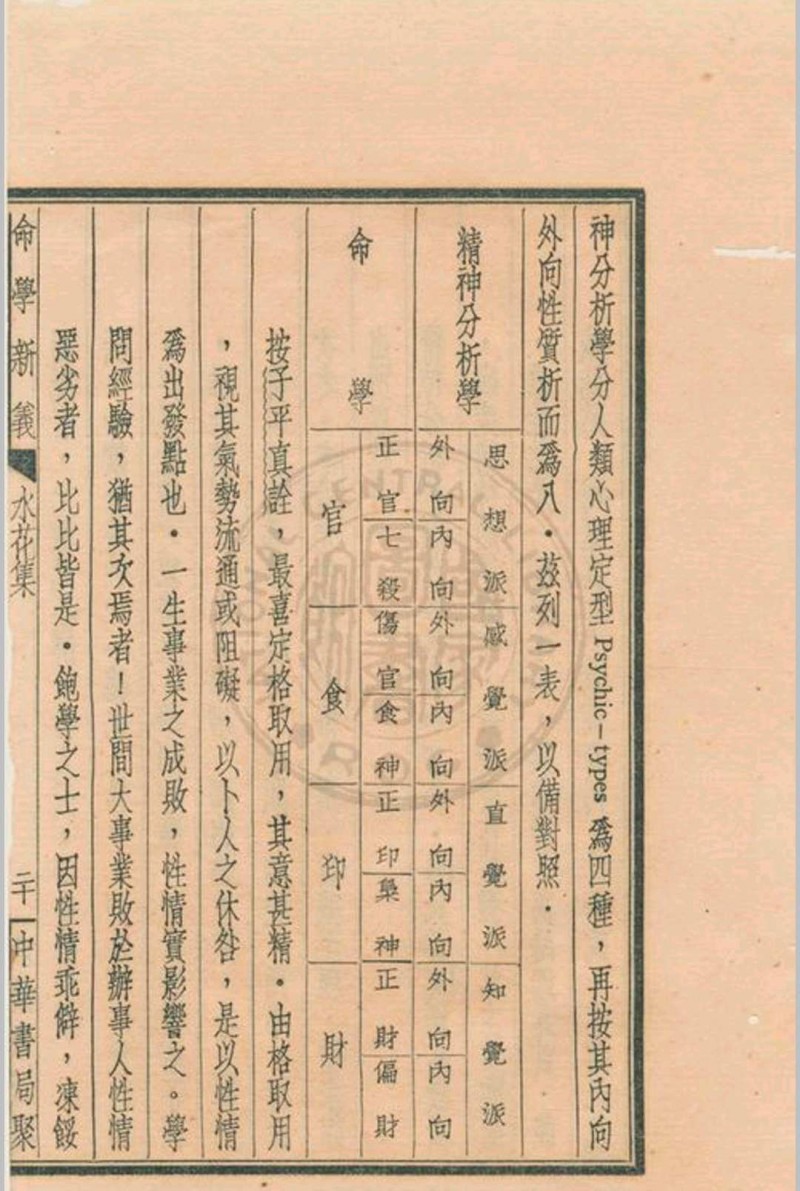 神分析學分人類心理定型 Psychic-types 爲四種，再按其內向
外向性質析而爲八．茲列一表，以備對照．
思想派 感覺派 直覺派 知覺派
精神分析學 外向 內向 外向 內向 外向 內向 外向 內向
正官 七殺 傷官 食神 正印 梟神 正財 偏財
命學 官 食 印 財
按子平真詮，最喜定格取用，其意甚精．由格取用
，視其氣勢流通或阻礙，以卜人之休咎，是以性情
爲出發點也．一生事業之成敗，性情實影響之。學
問經驗，猶其次焉者！世間大事業敗於辦事人性情
惡劣者，比比皆是．飽學之士，因性情乖僻，凍餒
命學新義 水花集 二十 中華書局聚